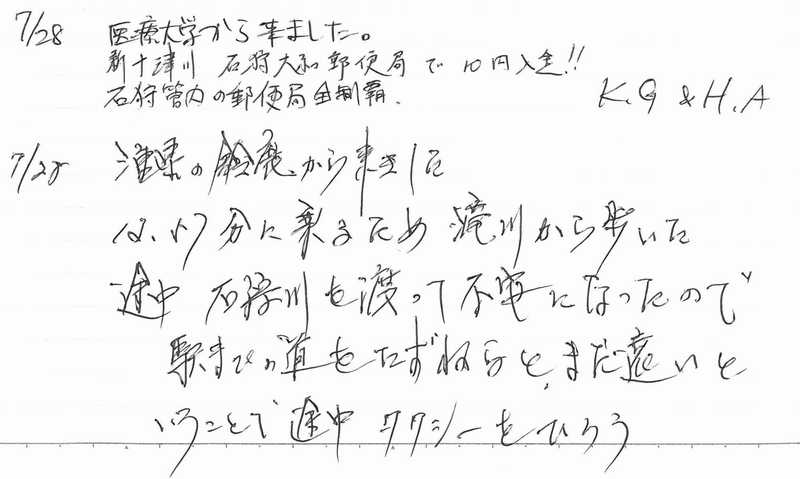 7/28 医療大学から来ました。
新十津川 石狩大和郵便局で10円入金!!
石狩管内の郵便局全制覇.
K.G & H.A
7/28 三重県の鈴鹿から来ました
12.47分に乗るため 滝川から歩いた
途中 石狩川を渡って不安になったので
駅までの道をたずねると、まだ遠いと
いうことで途中タクシーをひろう